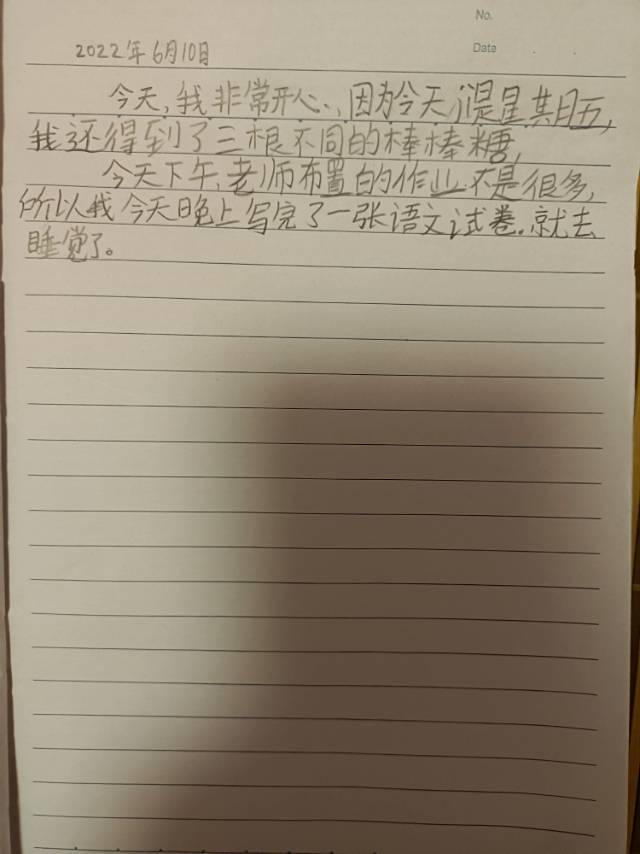 No.
2022年6月10日
Date
今天,我非常开心.,因为今天是星期五,
我还得到了三根不同的棒棒糖,
今天下午,老师布置的作业不是很多,
所以我今天晚上写完了一张语文试卷.就去
睡觉了。